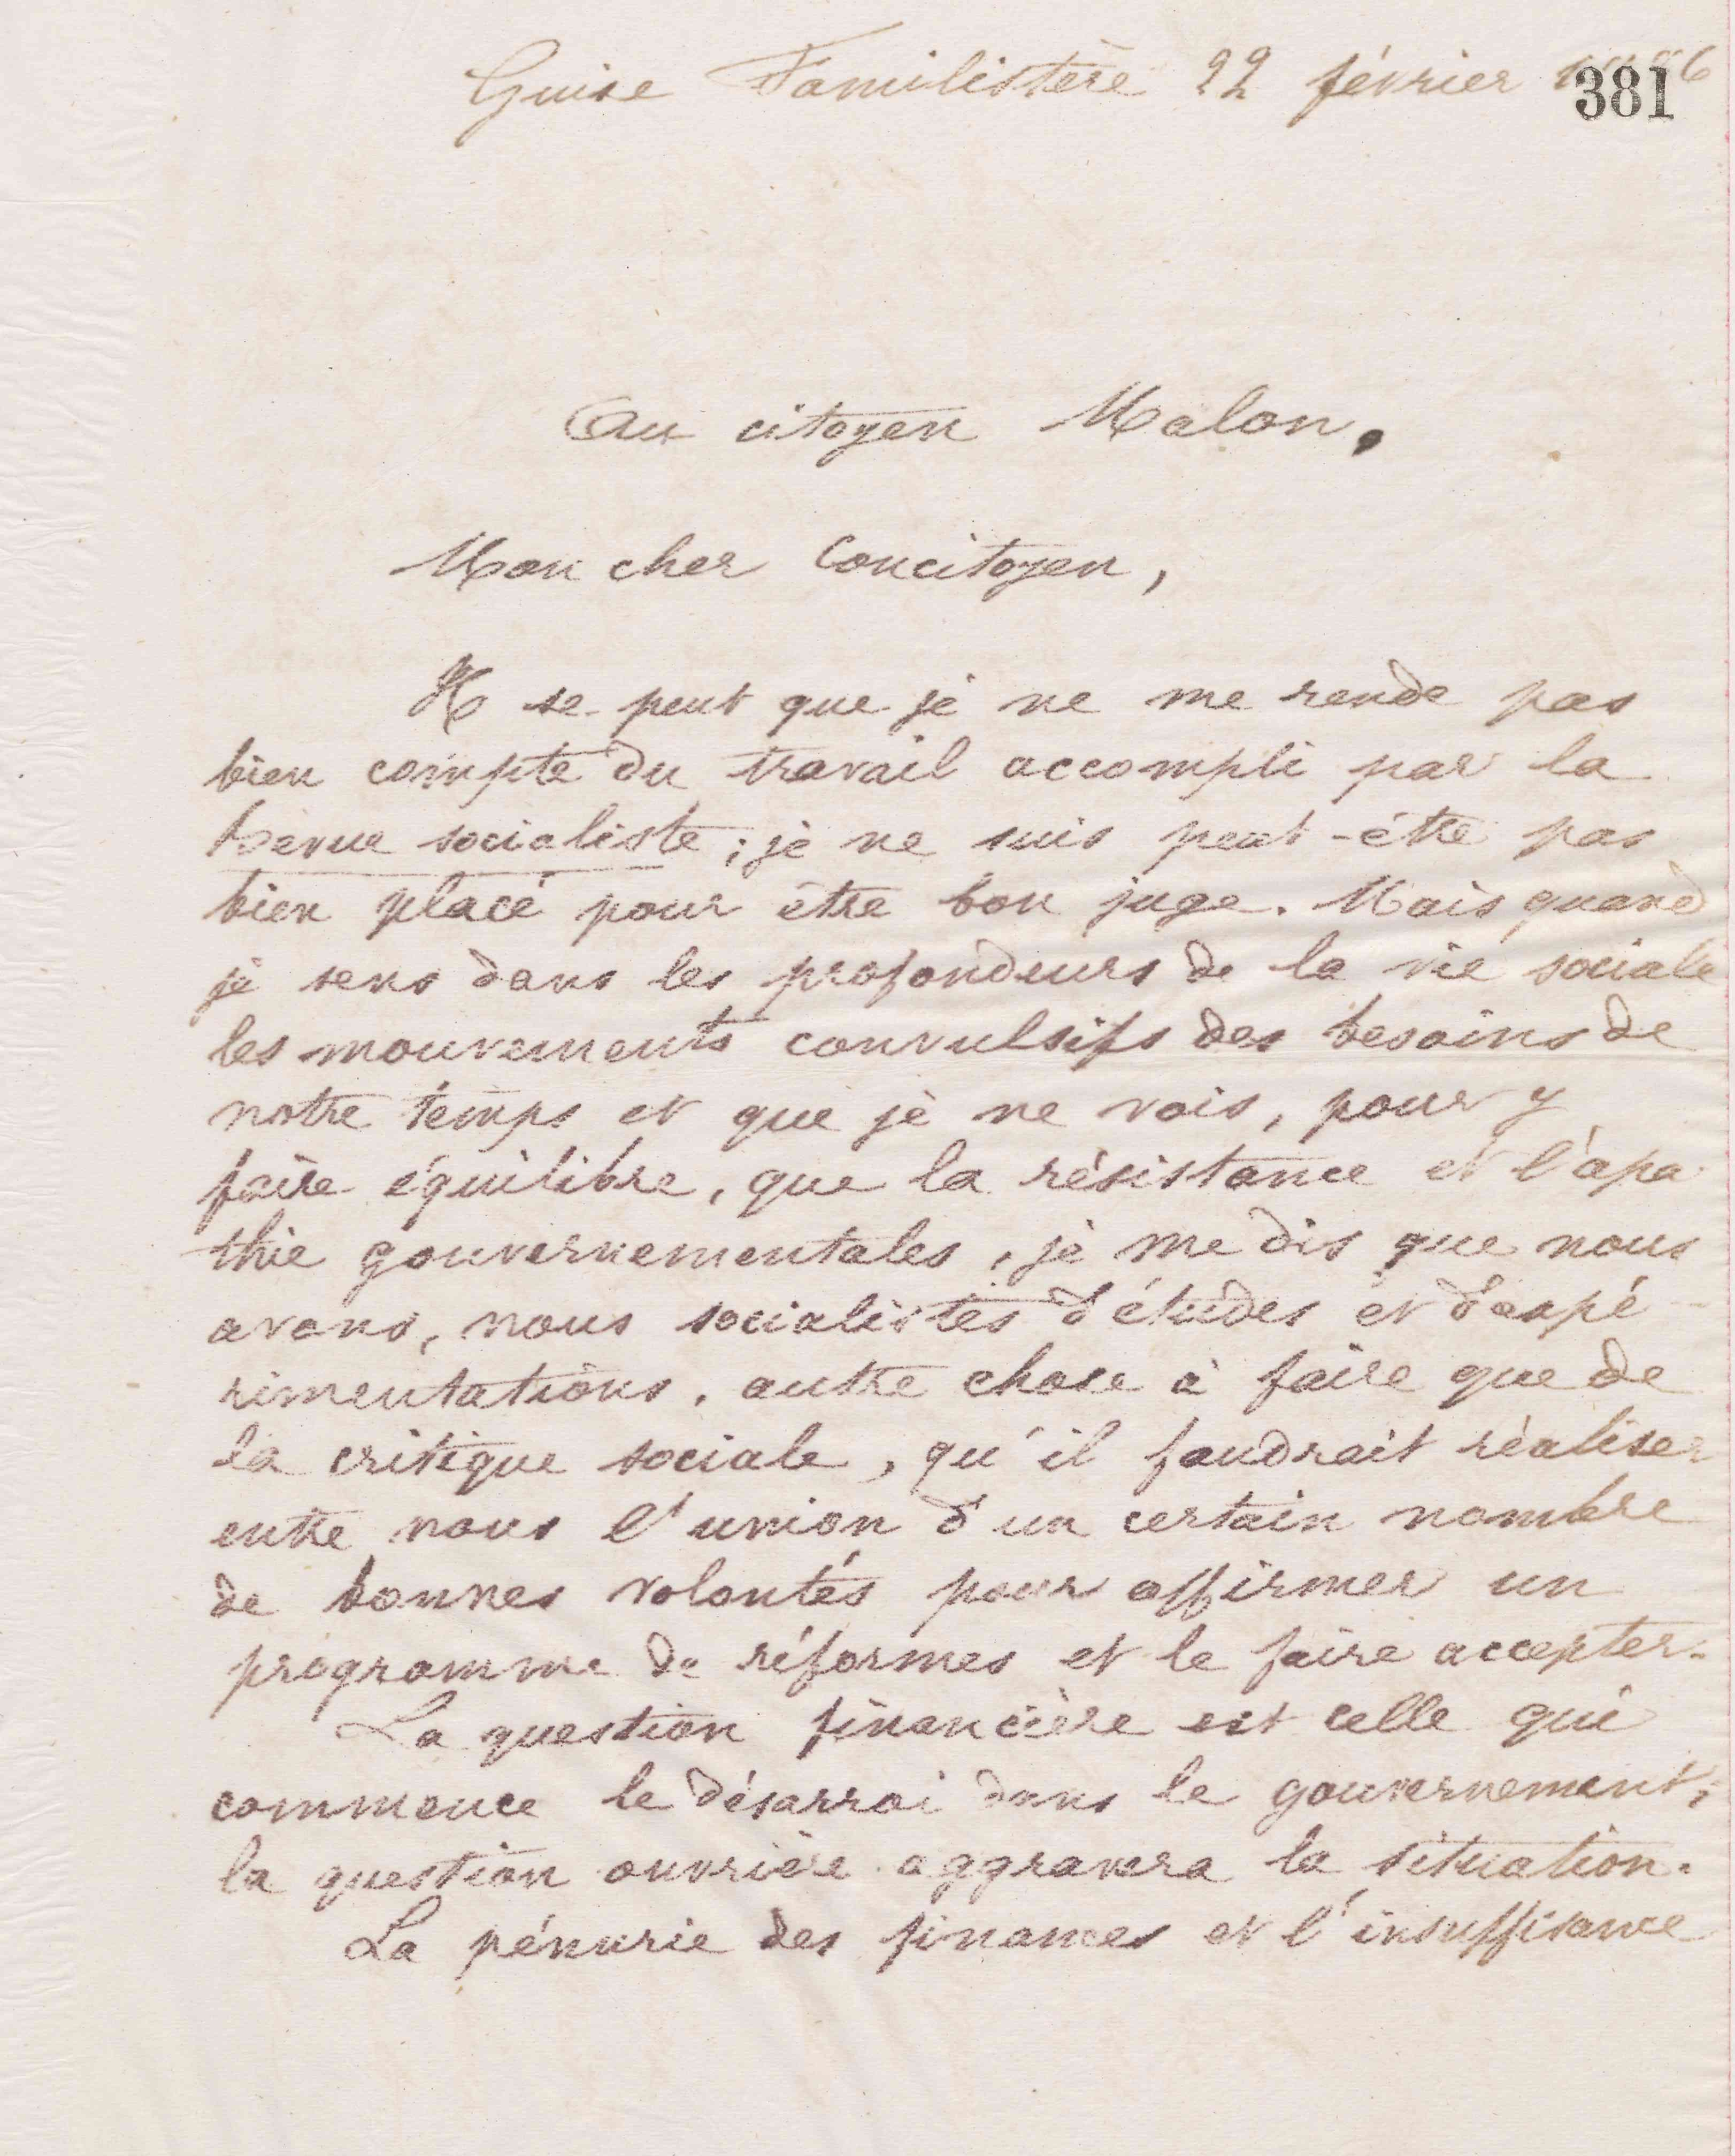 Guise Familistère 22 février
381
Au citoyen Malon,
Mon cher concitoyen,
Il se peut que je ne me rende pas
bien compte du travail accompli par la
Revue socialiste; je ne suis peut-être pas
bien placé pour être bon juge. Mais quand
je sens dans les profondeurs de la vie sociale
les mouvements convulsifs des besoins de
notre temps et que je ne vois, pour y
faire équilibre, que la résistance et l'apa-
thie gouvernementales, je me dis que nous
avons, nous socialistes d'études et d'expé-
rimentations, autre chose à faire que de
la critique sociale, qu'il faudrait réaliser
entre nous l'union d'un certain nombre
de bonnes volontés pour affirmer un
programme de réformes et le faire accepter.
La question financière est celle qui
commence le désarroi dans le gouvernement;
la question ouvrière aggravera la situation.
La pénurie des finances et l'insuffisance